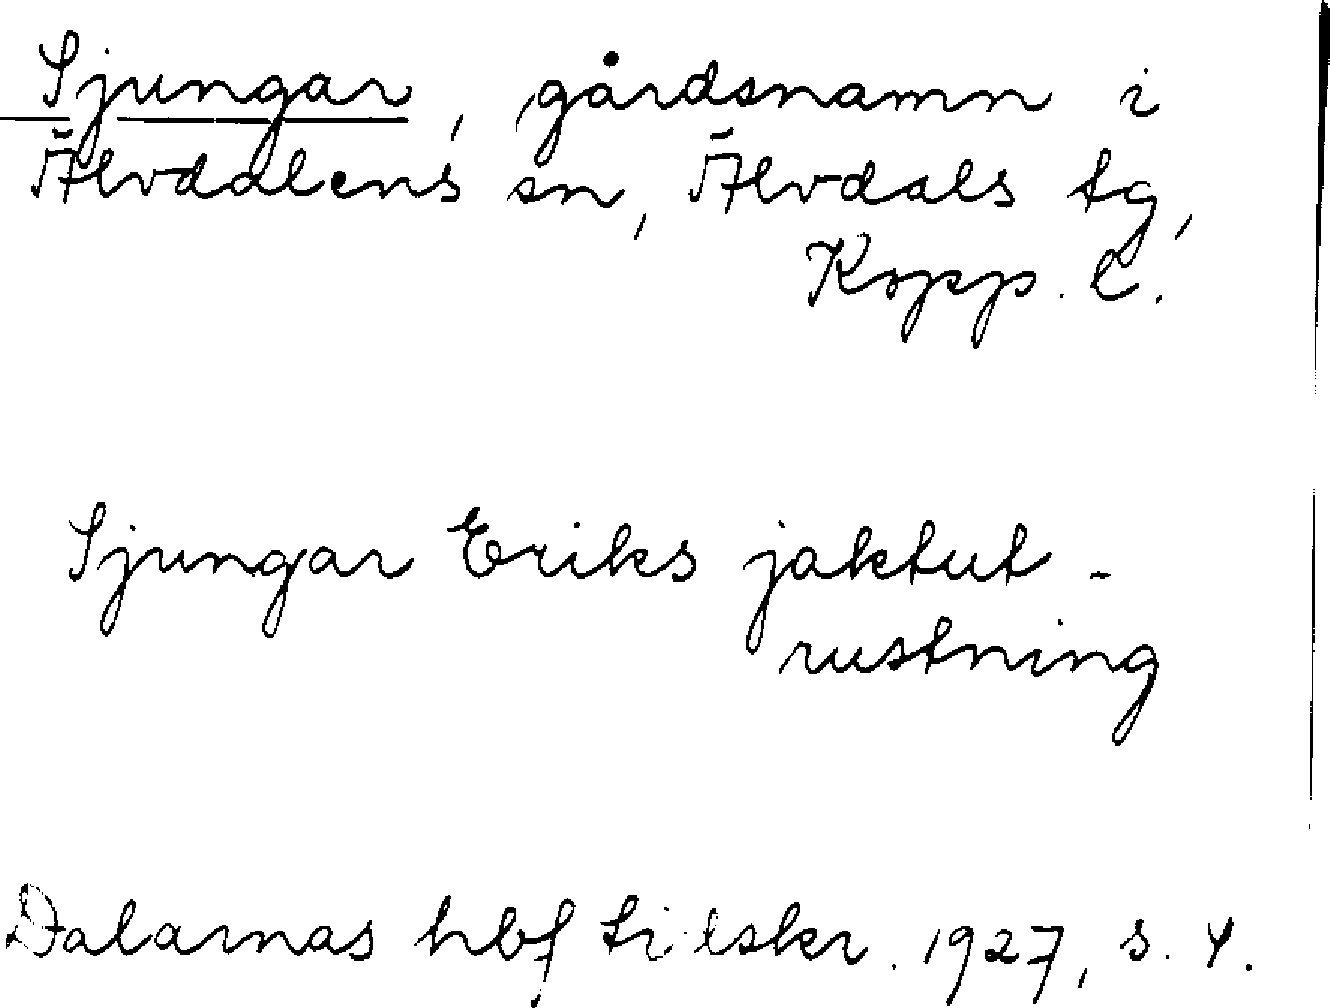 Sjungar, gårdsnamn i
Älvdalens sn, Älvdals tg,
Kopp. l.
Sjungar Eriks jaktut-
rustning
Dalarnas hbf tidskr. 1927, s. 4.